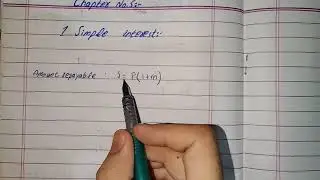 Chapter No.5:-
1 Simple interest:-
Amount repayable : S = P(1+rn)